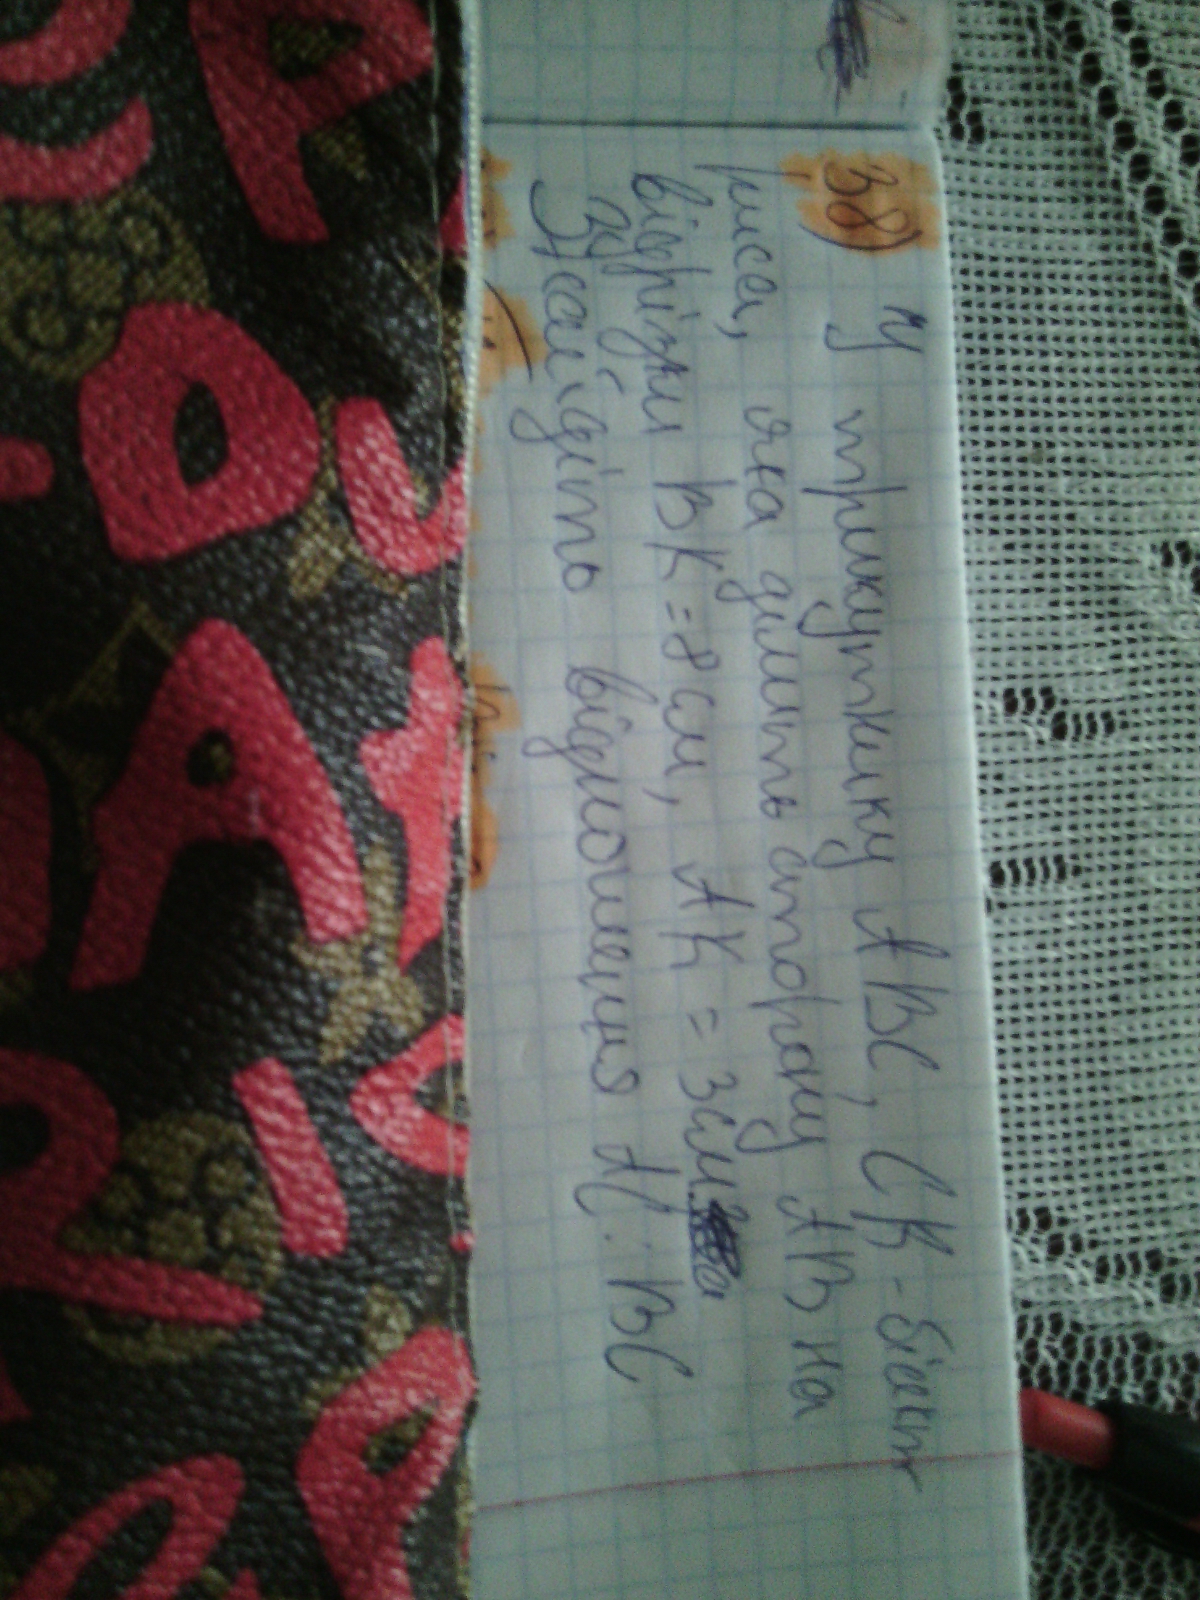 38) У трикутнику ABC, CK - бісект
риса, яка ділить сторону AB на
відрізки BK = 8 см, AK = 3 см.
Знайдіть відношення AC : BC